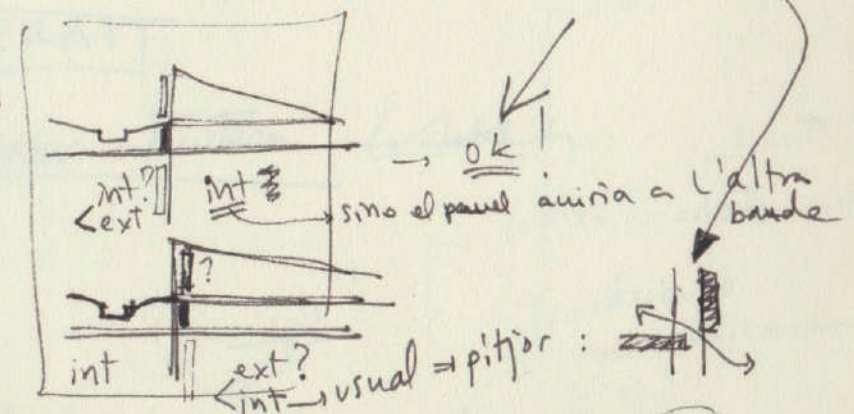 → ok!
int?
ext
int
sino el panel aniria a l'altra
banda
?
int
ext?
int → usual ⇒ pitjor :